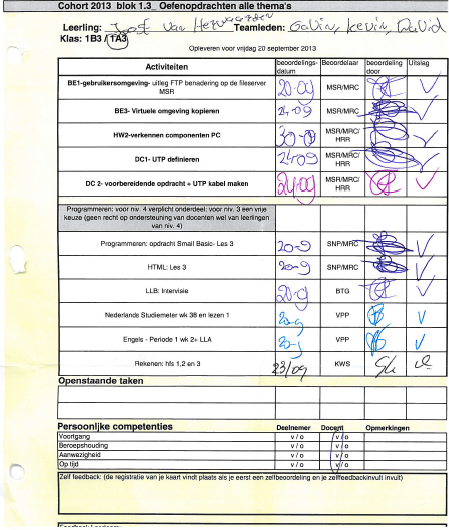 Cohort 2013 blok 1.3_ Oefenopdrachten alle thema's
Leerling: Joost van Teamleden: Gavin, Kevin, David
Klas: 1B3 / 1A3
Opleveren voor vrijdag 20 september 2013
Activiteiten beoordelings-datum Beoordelaar beoordeling door Uitslag
BE1-gebruikersomgeving- uitleg FTP benadering op de fileserver MSR 20-09 MSR/MRC
BE3- Virtuele omgeving kopieren 24-09 MSR/MRC
HW2-verkennen componenten PC 30-09 MSR/MRC/HRR
DC1- UTP definieren 24-09 MSR/MRC/HRR
DC 2- voorbereidende opdracht + UTP kabel maken 24-09 MSR/MRC/HRR
Programmeren: voor niv. 4 verplicht onderdeel: voor niv. 3 een vrije
keuze (geen recht op ondersteuning van docenten wel van leerlingen
van niv. 4)
Programmeren: opdracht Small Basic- Les 3 20-9 SNP/MRC
HTML: Les 3 20-9 SNP/MRC
LLB: Intervisie 20-9 BTG
Nederlands Studiemeter wk 38 en lezen 1 20-9 VPP
Engels - Periode 1 wk 2= LLA 20-9 VPP
Rekenen: hfs 1,2 en 3 23/09 KWS
Openstaande taken
Persoonlijke competenties Deelnemer Docent Opmerkingen
Voortgang v / o v / o
Beroepshouding v / o v / o
Aanwezigheid v / o v / o
Op tijd v / o v / o
Zelf feedback: (de registratie van je kaart vindt plaats als je eerst een zelfbeoordeling en je zelffeedbackinvult invult)